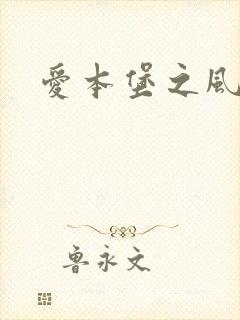 愛本堡之風
魯永文